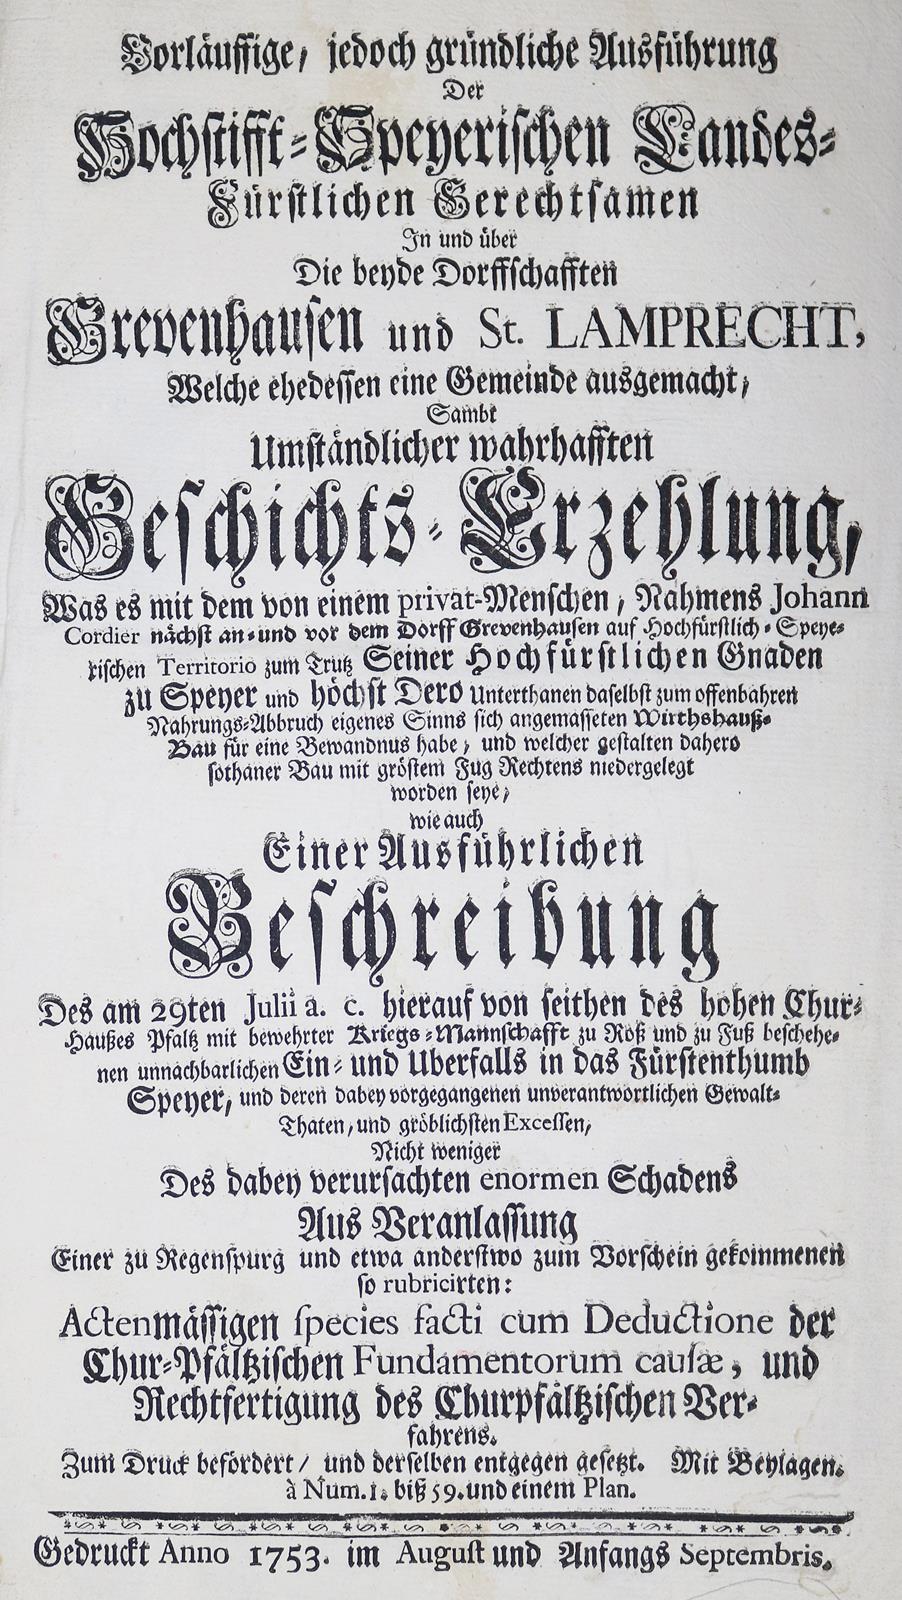 Vorläuffige, jedoch gründliche Ausführung
Der
Hochstifft-Speyerischen Landes-
Fürstlichen Gerechtsamen
In und über
Die beyde Dorffschafften
Grevenhausen und St. LAMPRECHT,
Welche ehedessen eine Gemeinde ausgemacht,
Sambt
Umständlicher wahrhafften
Geschichts-Erzehlung,
Was es mit dem von einem privat-Menschen, Nahmens Johann
Cordier nächst an- und vor dem Dorff Grevenhausen auf Hochfürstlich-Speye-
rischen Territorio zum Trutz Seiner Hochfürstlichen Gnaden
zu Speyer und höchst Dero Unterthanen daselbst zum offenbahren
Nahrungs-Abbruch eigenes Sinns sich angemasseten Wirthshauß-
Bau für eine Bewandnus habe, und welcher gestalten dahero
sothaner Bau mit gröstem Fug Rechtens niedergelegt
worden seye,
wie auch
Einer Ausführlichen
Beschreibung
Des am 29ten Julii a. c. hierauf von seithen des hohen Chur-
Haußes Pfaltz mit bewehrter Kriegs-Mannschafft zu Roß und zu Fuß beschehe-
nen unnachbarlichen Ein- und Uberfalls in das Fürstenthumb
Speyer, und deren dabey vorgegangenen unverantwortlichen Gewalt-
Thaten, und gröblichsten Excessen,
Nicht weniger
Des dabey verursachten enormen Schadens
Aus Veranlassung
Einer zu Regenspurg und etwa anderstwo zum Vorschein gekommenen
so rubricirten:
Actenmässigen species facti cum Deductione der
Chur-Pfältzischen Fundamentorum causæ, und
Rechtfertigung des Churpfältzischen Ver-
fahrens.
Zum Druck befördert / und derselben entgegen gesetzt. Mit Beylagen.
à Num. 1. biß 59. und einem Plan.
Gedruckt Anno 1753. im August und Anfangs Septembris.